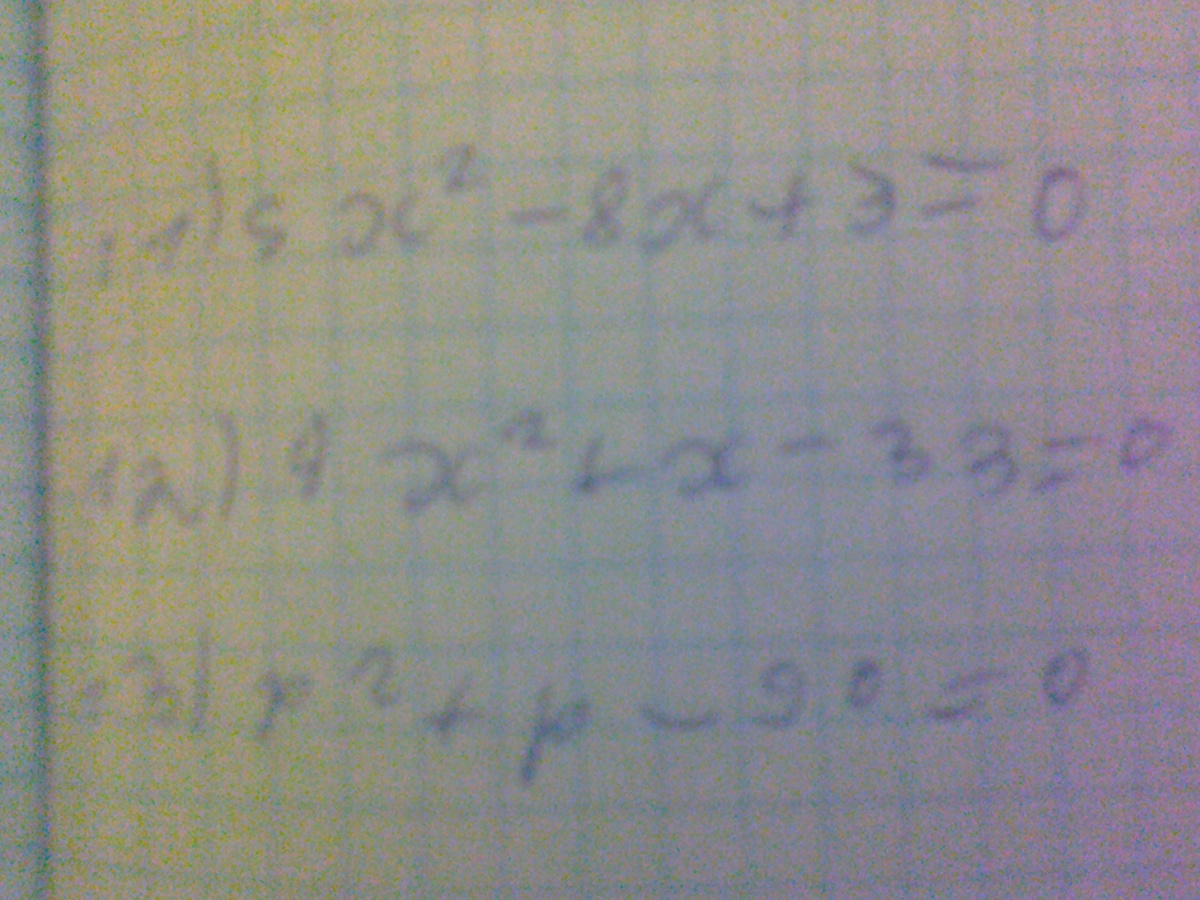 11) 5x² - 8x + 3 = 0
12) 4x² + x - 33 = 0
13) p² + p - 90 = 0